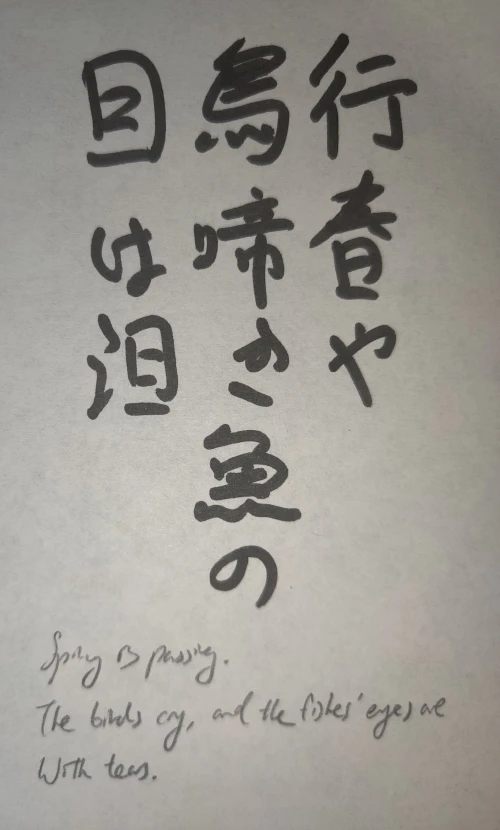 行春や
鳥啼き魚の
目は泪
Spring is passing.
The birds cry, and the fishes' eyes are
With tears.